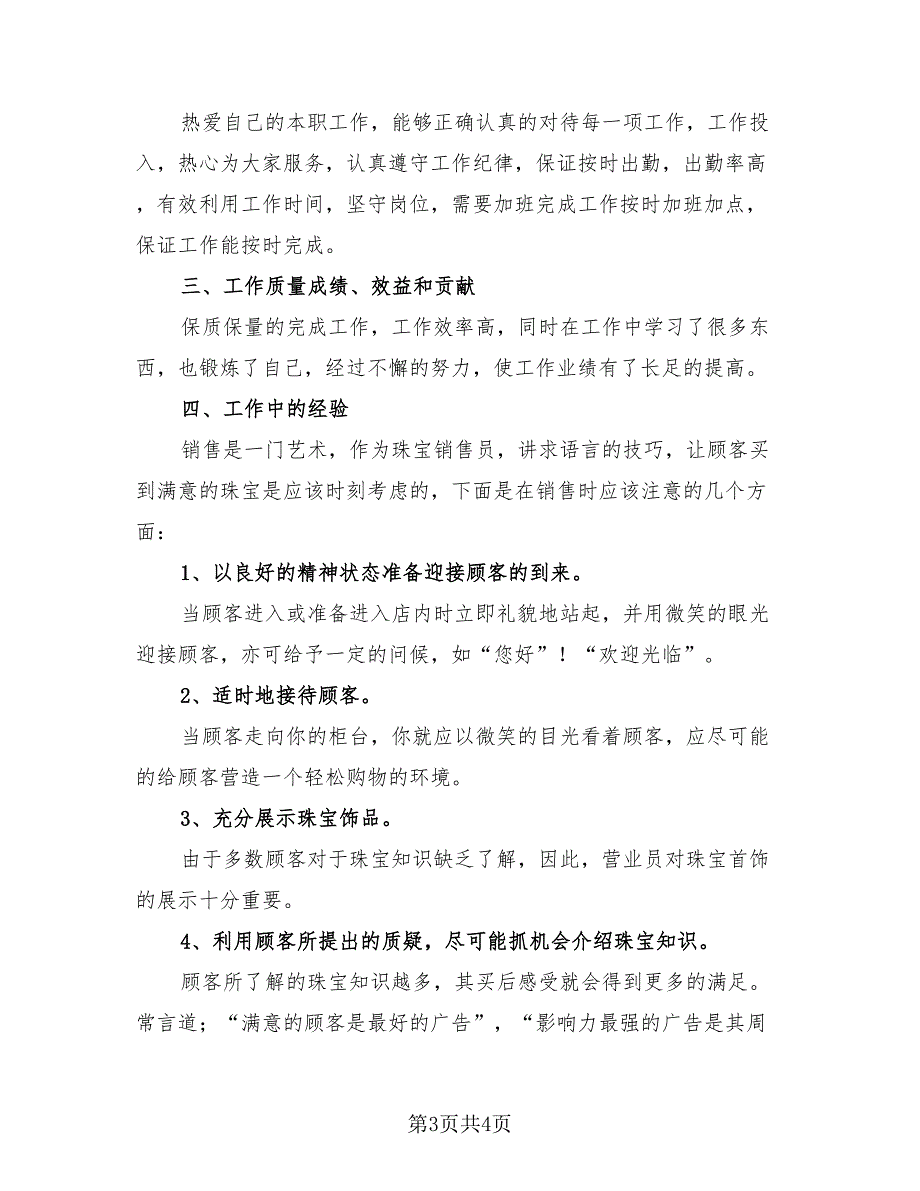 热爱自己的本职工作，能够正确认真的对待每一项工作，工作投
入，热心为大家服务，认真遵守工作纪律，保证按时出勤，出勤率高
，有效利用工作时间，坚守岗位，需要加班完成工作按时加班加点，
保证工作能按时完成。
三、工作质量成绩、效益和贡献
保质保量的完成工作，工作效率高，同时在工作中学习了很多东
西，也锻炼了自己，经过不懈的努力，使工作业绩有了长足的提高。
四、工作中的经验
销售是一门艺术，作为珠宝销售员，讲求语言的技巧，让顾客买
到满意的珠宝是应该时刻考虑的，下面是在销售时应该注意的几个方
面：
1、以良好的精神状态准备迎接顾客的到来。
当顾客进入或准备进入店内时立即礼貌地站起，并用微笑的眼光
迎接顾客，亦可给予一定的问候，如“您好”！“欢迎光临”。
2、适时地接待顾客。
当顾客走向你的柜台，你就应以微笑的目光看着顾客，应尽可能
的给顾客营造一个轻松购物的环境。
3、充分展示珠宝饰品。
由于多数顾客对于珠宝知识缺乏了解，因此，营业员对珠宝首饰
的展示十分重要。
4、利用顾客所提出的质疑，尽可能抓机会介绍珠宝知识。
顾客所了解的珠宝知识越多，其买后感受就会得到更多的满足。
常言道；“满意的顾客是最好的广告”，“影响力最强的广告是其周
第3页共4页